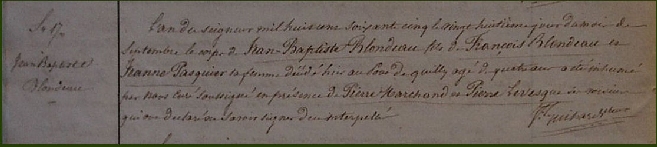 Jean Baptiste
Blondeau
L'an du seigneur mil huit cent soixante cinq le vingt huitième jour du mois de
Septembre le corps de Jean-Baptiste Blondeau fils de François Blondeau et
Jeanne Pasquier sa femme décédé hier au de quilly agé de quatre ans a été inhumé
par nous curé soussigné en présence de Pierre Marchand et Pierre Levesque
qui ont déclaré ne savoir signer de ce interpelés